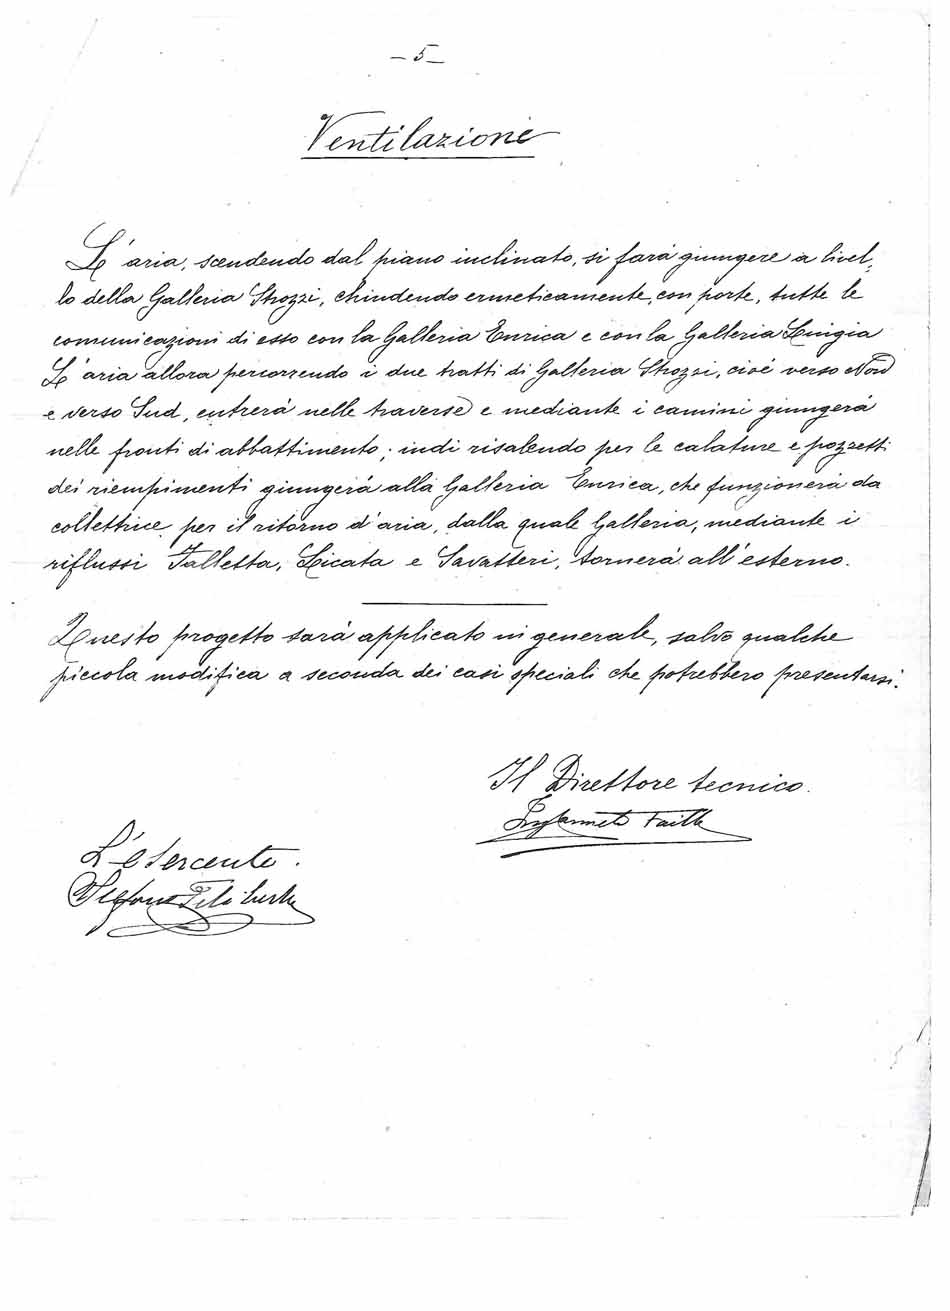 - 5 -
Ventilazione
L'aria, scendendo dal piano inclinato, si farà giungere a livel-
lo della Galleria Strozzi, chiudendo ermeticamente, con porte, tutte le
comunicazioni di esso con la Galleria Enrica e con la Galleria Luigia
L'aria allora percorrendo i due tratti di Galleria Strozzi, cioè verso Nord
e verso Sud, entrerà nelle traverse e mediante i camini giungerà
nelle fronti di abbattimento; indi risalendo per le calature e pozzetti
dei riempimenti giungerà alla Galleria Enrica, che funzionerà da
collettrice per il ritorno d'aria, dalla quale Galleria, mediante i
riflussi Falletta, Licata e Savatteri, tornerà all'esterno.
Questo progetto sarà applicato in generale, salvo qualche
piccola modifica a seconda dei casi speciali che potrebbero presentarsi.
Il Direttore tecnico.
L'esercente.